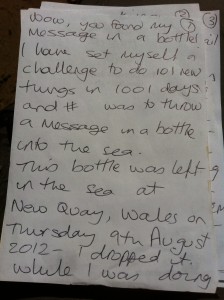 Wow, you found my ①
message in a bottle
I have set myself a
challenge to do 101 new
things in 1001 days
and # was to throw
a message in a bottle
into the sea.
This bottle was left
in the sea at
New Quay, Wales on
Thursday 9th August
2012 - I dropped it
while I was doing -